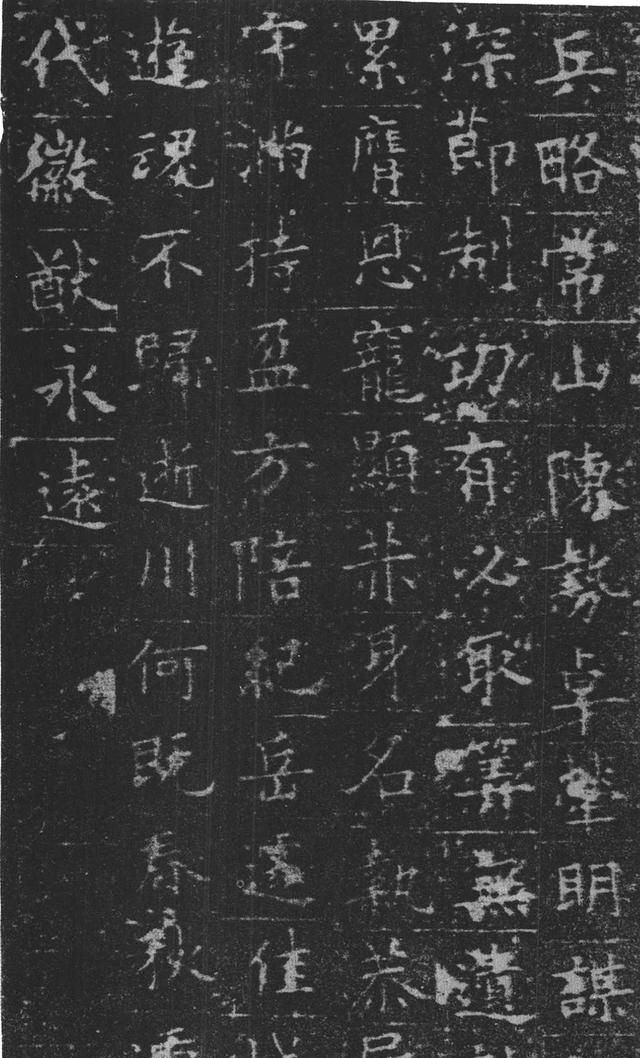 兵略常山陳勢卓犖明謀
深節制功有必取筭無遺
累膺恩寵顯赤身名執恭
守滿持盈方陪紀岳遽佳
遊魂不歸逝川何既春秋
代徽猷永遠